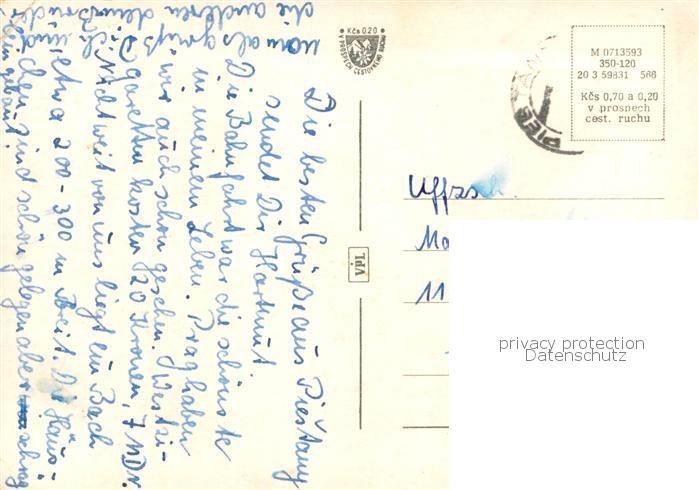 Die besten Grüße aus Piešťany
sendet Dir Hartmut
Die Bahnfahrt war die schönste
in meinem Leben. Prag haben
wir auch schon gesehen. Westzi-
garetten kosten 20 Kronen, 7 MDN.
Nicht weit von uns liegt ein Bach
etwa 200-300 m Breit. Die Häus-
chen sind schön gelegen aber schräg
hingebaut.
die anderen
Kčs 0.20
V PROSPĚCH CESTOVNÍHO RUCHU
M 0713593
350-120
20 3 59831 566
Kčs 0,70 a 0,20
v prospech
cest. ruchu
PIEŠŤANY
VpL
Uffzsch.
Ma
11
privacy protection
Datenschutz